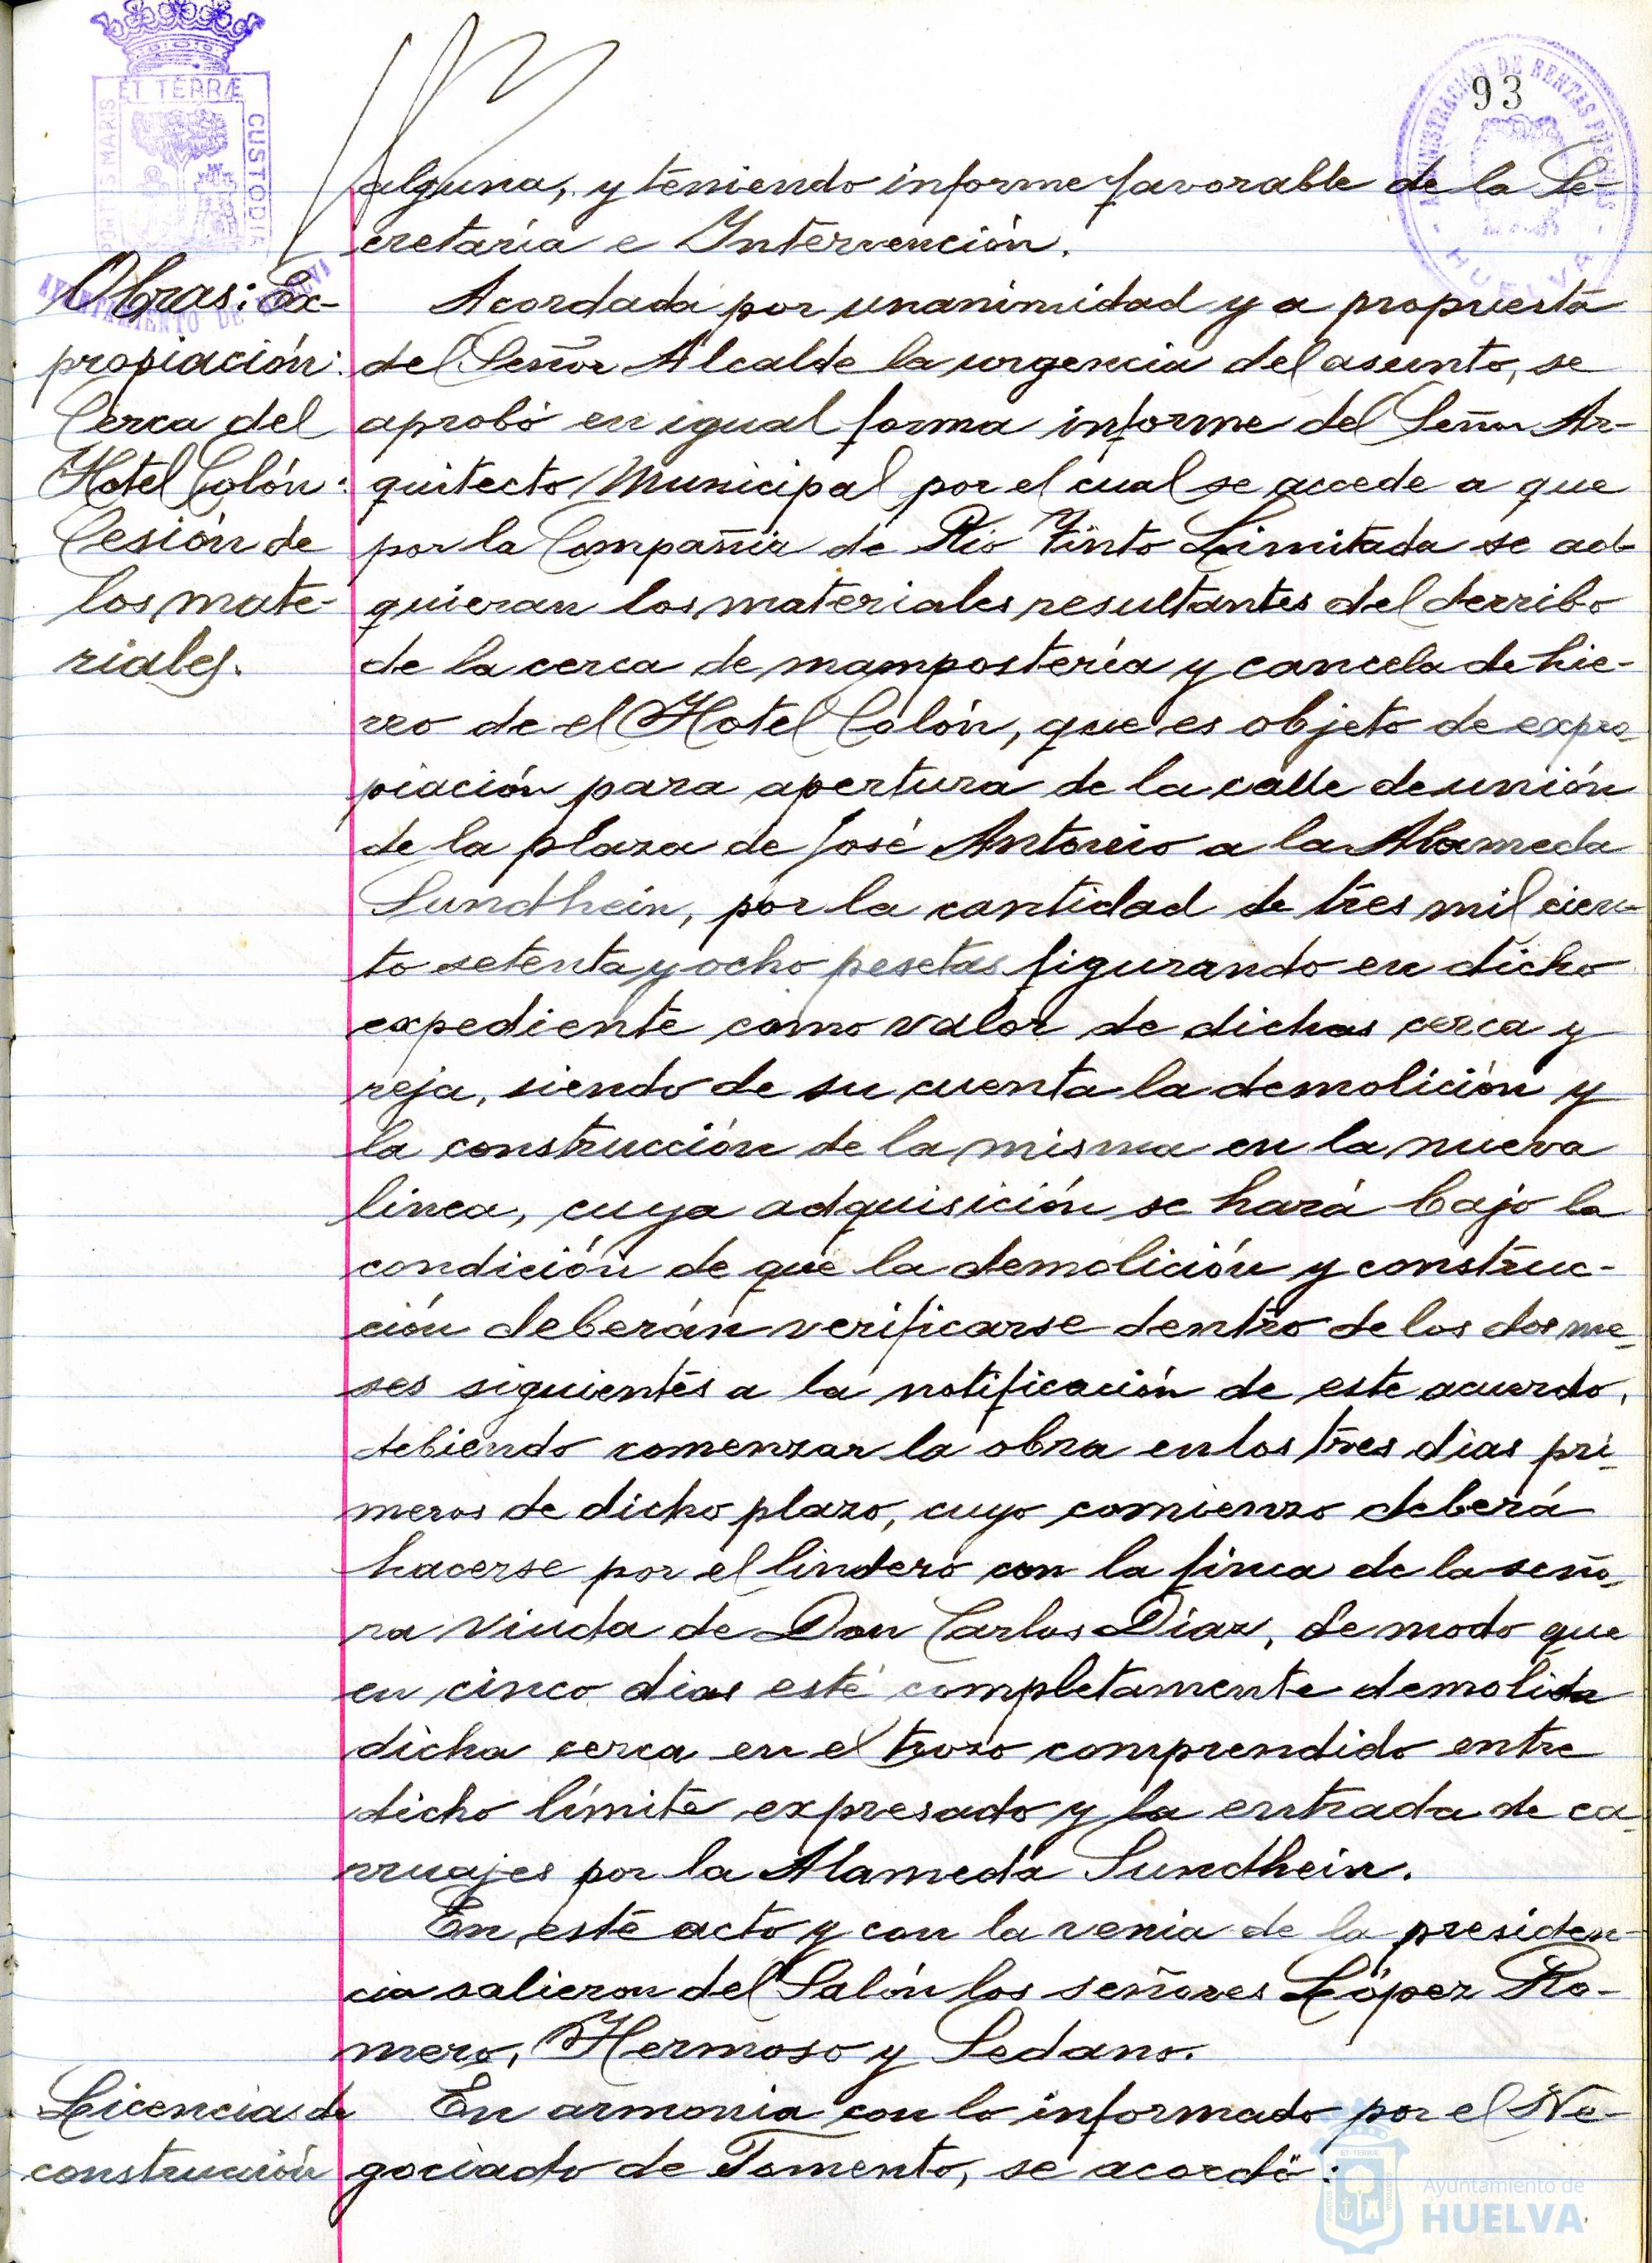 ET TERRÆ
PORTUS MARIS
CUSTODIA
AYUNTAMIENTO DE HUELVA
ADMINISTRACION DE RENTAS PUBLICAS
- HUELVA -
93
alguna, y teniendo informe favorable de la Se-
cretaría e Intervención.
Obras: Ex-
propiación:
Cerca del
Hotel Colón:
Cesión de
los mate-
riales.
Acordada por unanimidad y a propuesta
del Señor Alcalde la urgencia del asunto, se
aprobó en igual forma informe del Señor Ar-
quitecto Municipal por el cual se accede a que
por la Compañia de Rio Tinto Limitada se ad-
quieran los materiales resultantes del derribo
de la cerca de mampostería y cancela de hie-
rro de el Hotel Colón, que es objeto de expro-
piación para apertura de la calle de unión
de la plaza de José Antonio a la Alameda
Sundhein, por la cantidad de tres mil cien-
to setenta y ocho pesetas figurando en dicho
expediente como valor de dichas cerca y
reja, siendo de su cuenta la demolición y
la construcción de la misma en la nueva
linea, cuya adquisición se hará bajo la
condición de que la demolición y construc-
ción deberán verificarse dentro de los dos me-
ses siguientes a la notificación de este acuerdo,
debiendo comenzar la obra en los tres dias pri-
meros de dicho plazo, cuyo comienzo deberá
hacerse por el lindero con la finca de la seño-
ra viuda de Don Carlos Díaz, de modo que
en cinco dias esté completamente demolida
dicha cerca en el trozo comprendido entre
dicho límite expresado y la entrada de ca-
rruajes por la Alameda Sundhein.
En este acto y con la venia de la presiden-
cia salieron del Salón los señores López Ro-
mero, Hermoso y Sedano.
Licencias de
construcción
En armonia con lo informado por el Ne-
gociado de Fomento, se acordó:
Ayuntamiento de
HUELVA